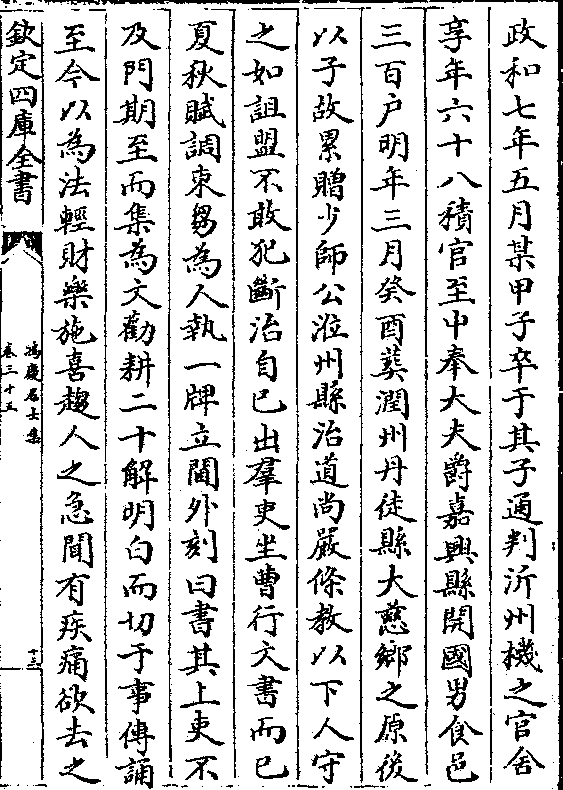 政和七年五月某甲子卒于其子通判沂州機之官舍
享年六十八積官至中奉大夫爵嘉興縣開國男食邑
三百户明年三月癸酉葬潤州丹徒縣大慈鄉之原後
以子故累贈少師公涖州縣治道尚嚴條教以下人守
之如詛盟不敢犯斷治自已出羣吏坐曹行文書而已
夏秋賦調束芻為人執一牌立閫外刻曰書其上吏不
及門期至而集為文勸耕二十解明白而切于事傳誦
至今以為法輕財樂施喜趨人之急聞有疾痛欲去之
欽定四庫全書
鴻慶居士集
卷三十五
十三